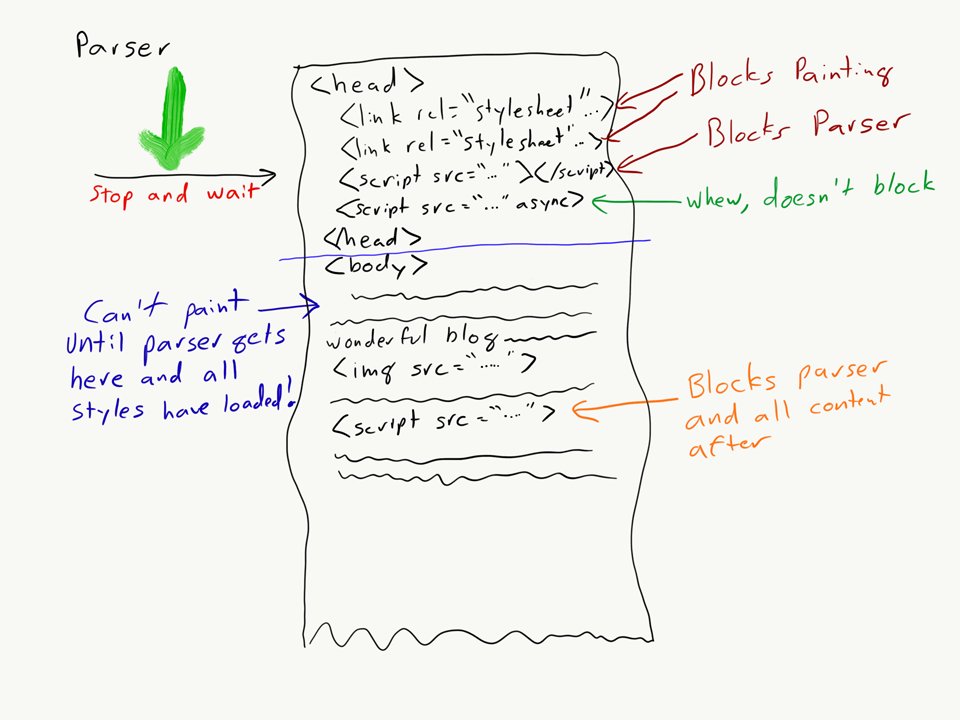 Parser
Stop and wait
<head>
<link rel="stylesheet"...>
<link rel="stylesheet"...>
<script src="..."></script>
<script src="..." async>
</head>
<body>
wonderful blog
<img src=".....">
<script src="....">
Blocks Painting
Blocks Parser
whew, doesn't block
Can't paint
until parser gets
here and all
styles have loaded!
Blocks parser
and all content
after